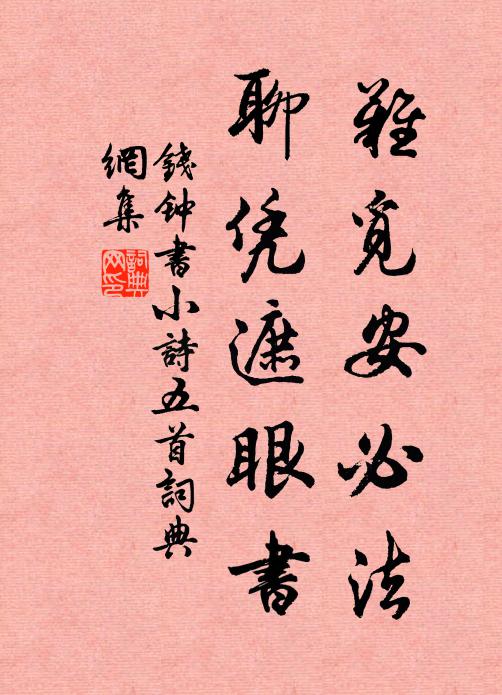 難覓安必法
聊凭遮眼書
錢钟書小詩五首詞典
網集
詞典
网印